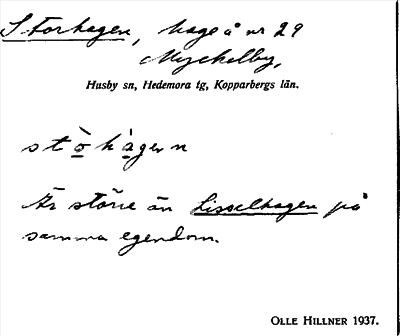 Storhagen, hage å nr 29
Myckelby,
Husby sn, Hedemora tg, Kopparbergs län.
stò̱ hà̱gen
Är större än Lisselhagen på
samma egendom.
OLLE HILLNER 1937.